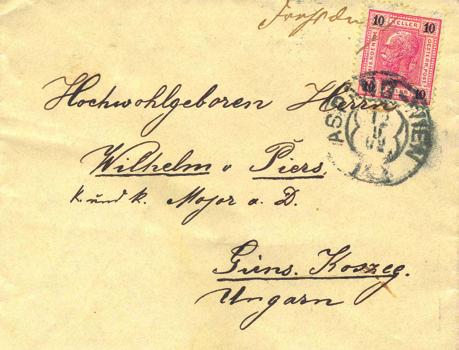 10 HELLER 10
10 10
Hochwohlgeboren Herrn
Wilhelm v Piers,
k. und k. Major a. D.
Güns. Koszeg.
Ungarn